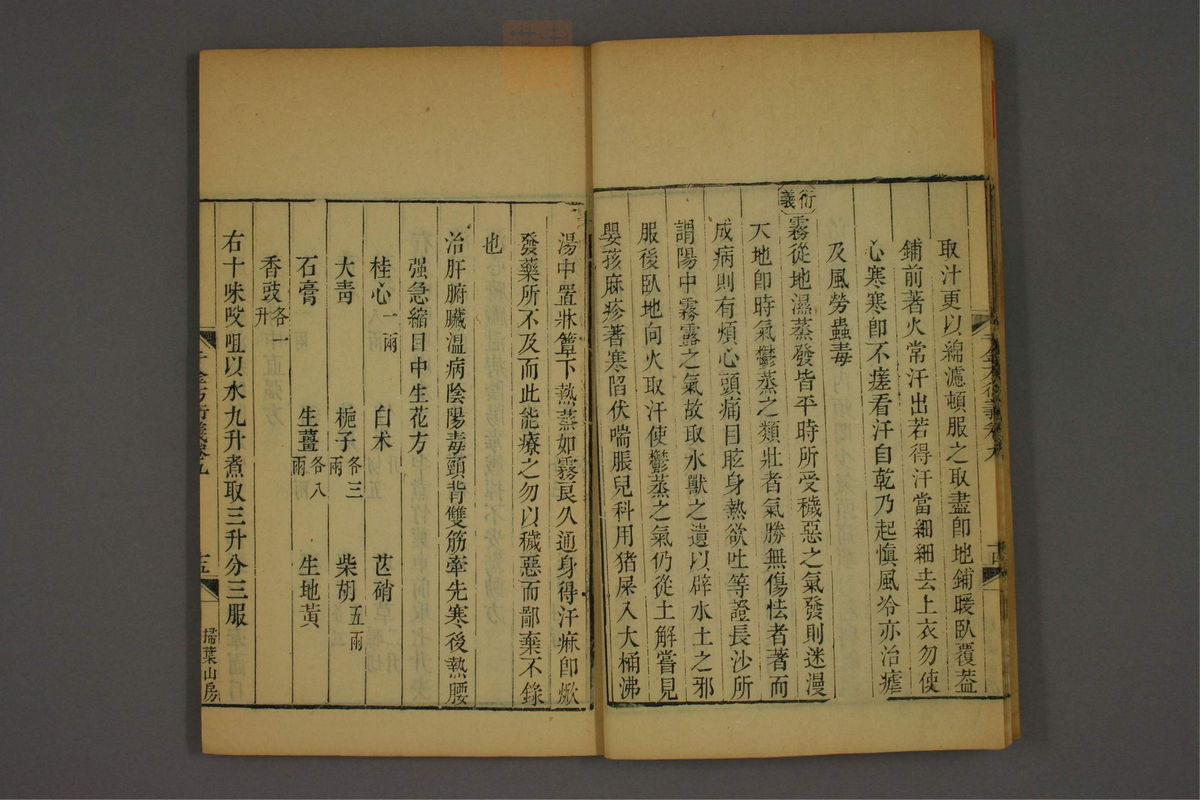 取汁更以綿濾頓服之取盡卽地鋪暖臥覆蓋
鋪前著火常汗出若得汗當細細去上衣勿使
心寒寒卽不瘥看汗自乾乃起愼風冷亦治瘧
及風勞蟲毒
衍義霧從地濕蒸發皆平時所受穢惡之氣發則迷漫
天地卽時氣鬱蒸之類壯者氣勝無傷怯者著而
成病則有煩心頭痛目眩身熱欲吐等證長沙所
謂陽中霧露之氣故取水獸之遺以辟水土之邪
服後臥地向火取汗使鬱蒸之氣仍從土解嘗見
嬰孩麻疹著寒陷伏喘脹兒科用猪屎入大桶沸
湯中置牀簟下熱蒸如霧良久通身得汗痳卽焮
發藥所不及而此能療之勿以穢惡而鄙棄不錄
也
治肝腑臟溫病陰陽毒頸背雙筋牽先寒後熱腰
强急縮目中生花方
桂心一兩 白术 芒硝
大靑 梔子各三兩 柴胡五兩
石膏 生薑各八兩 生地黃
香豉各一升
右十味㕮咀以水九升煮取三升分三服
千金方衍義卷九
十五
掃葉山房